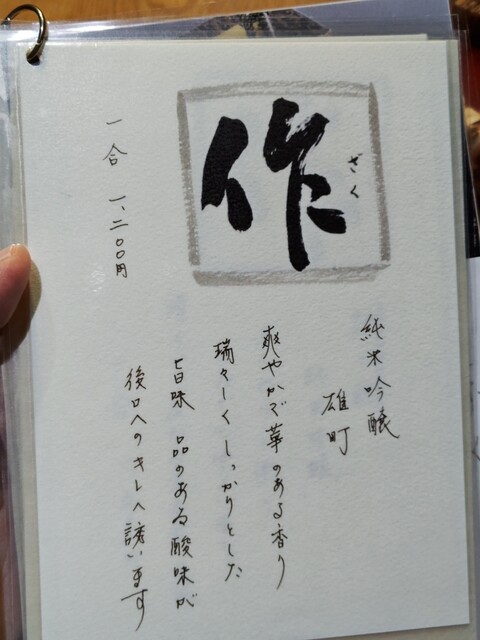 作
ざく
純米吟醸
雄町
爽やかで華のある香り
瑞々しくしっかりとした
旨味 品のある酸味が
後口へのキレへ誘います
一合 一、二〇〇円